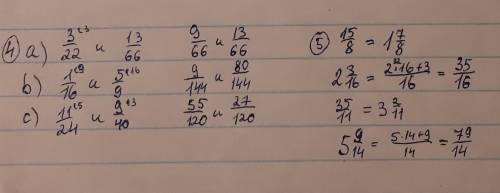 ④ a) 3/22 ˣ³ и 13/66   9/66 и 13/66
b) 1/16 ˣ⁹ и 5/9 ˣ¹⁶   9/144 и 80/144
c) 11/24 ˣ⁵ и 9/40 ˣ³   55/120 и 27/120
⑤ 15/8 = 1 7/8
2 3/16 = (2·16+3)/16 = 35/16
35/11 = 3 2/11
5 9/14 = (5·14+9)/14 = 79/14